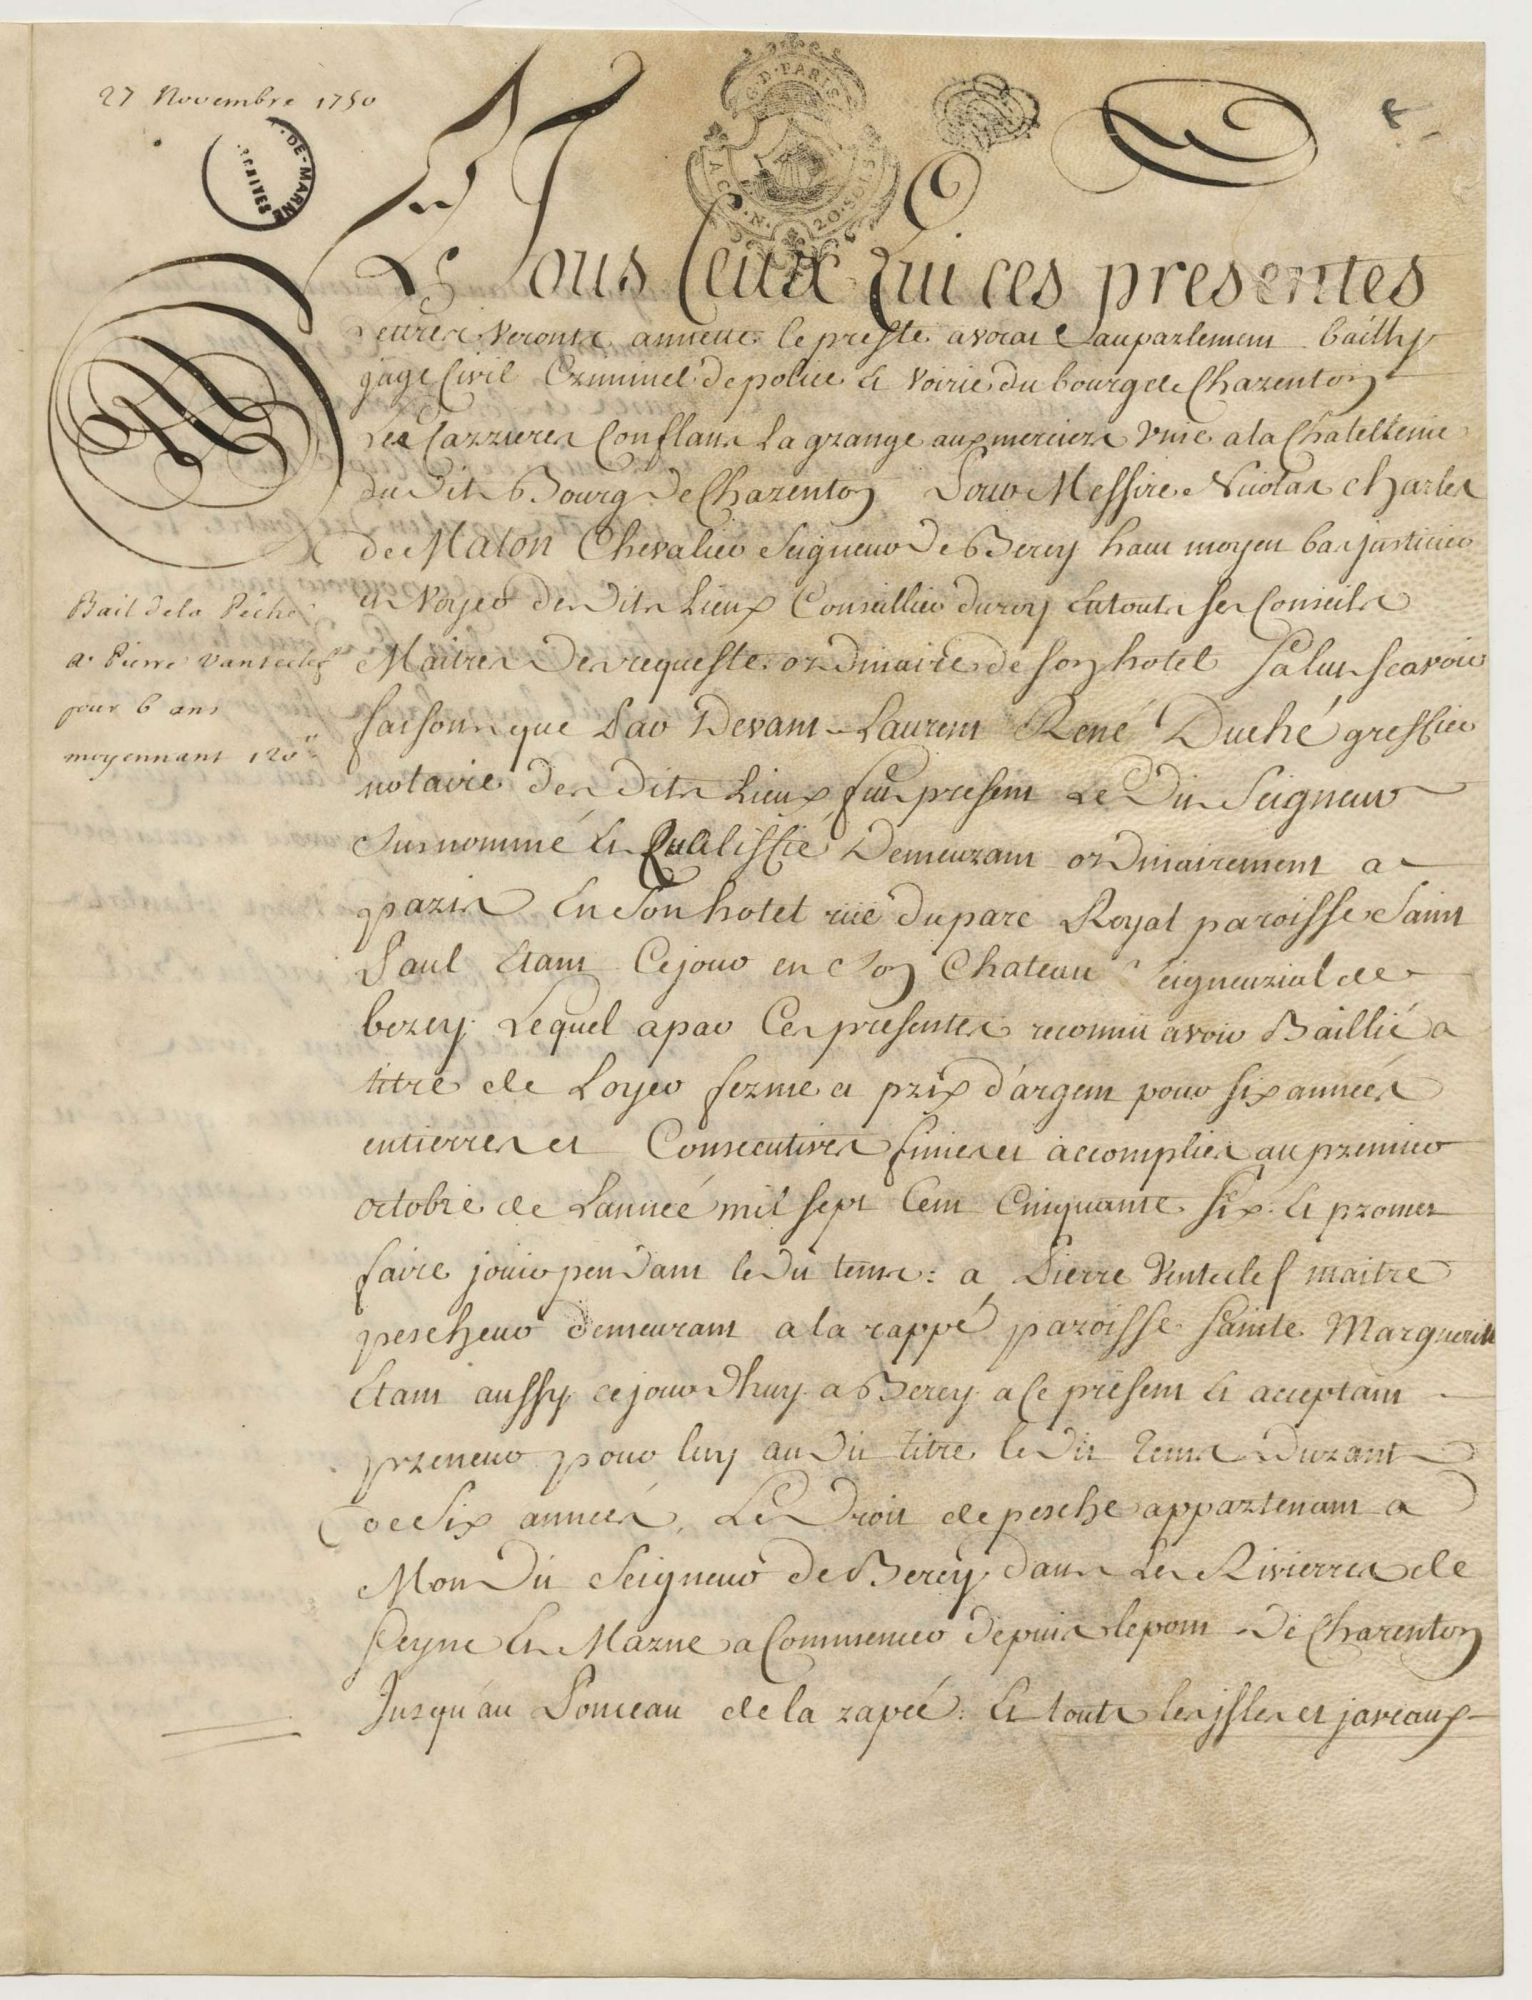 27 Novembre 1750
G. D. PARIS
20. SOLS
DE-MARNE
A Tous Ceux Qui ces presentes
Lettres Veronts annette le preste avocat au parlement bailly
juge Civil Criminel de police et voirie du bourg de Charenton
les Carrieres Conflans la grange aux merciers unie a la Chatellenie
du dit Bourg De Charenton Pour Messire Nicolas Charles
de Malon Chevalier Seigneur De Bercy haut moyen bas justicier
et Voyer des dits Lieux Conseiller du roy en touts ses Conseils
Maitres Des requeste ordinaire de son hotel Salut scavoir
faisons que Par Devant Laurent René Duché greffier
notaire des dits Lieux fut present Le Dit Seigneur
Surnommé et Qualiffié Demeurant ordinairement a
paris En Son hotel rue du parc Royal paroisse Saint
Paul Etant Ce jour en Son Chateau Seigneurial de
bercy Lequel a par Ces presentes reconnu avoir Baillié a
titre de Loyer ferme et prix d'argent pour six années
entierres et Consecutives finies et accomplies au premier
octobre de L'année mil sept Cent Cinquante Six et promet
faire jouir pendant le Dit tems : a Pierre Venteclef maitre
pescheur demeurant a la rappé paroisse Sainte Marguerite
Etant aussy ce jour d'huy a Bercy a Ce present et acceptant
preneur pour luy au Dit titre le Dit tems Durant
de Six années, Le Droit de pesche appartenant a
Mon Dit Seigneur de Bercy dans Les Rivierres de
Seyne et Marne a Commencer depuis le pont De Charenton
Jusqu'au Ponceau de la rapée. et touts les isles et javeaux
Bail de la Pêche
a Pierre Vanteclef
pour 6 ans
moyennant 120ᵗᵗ